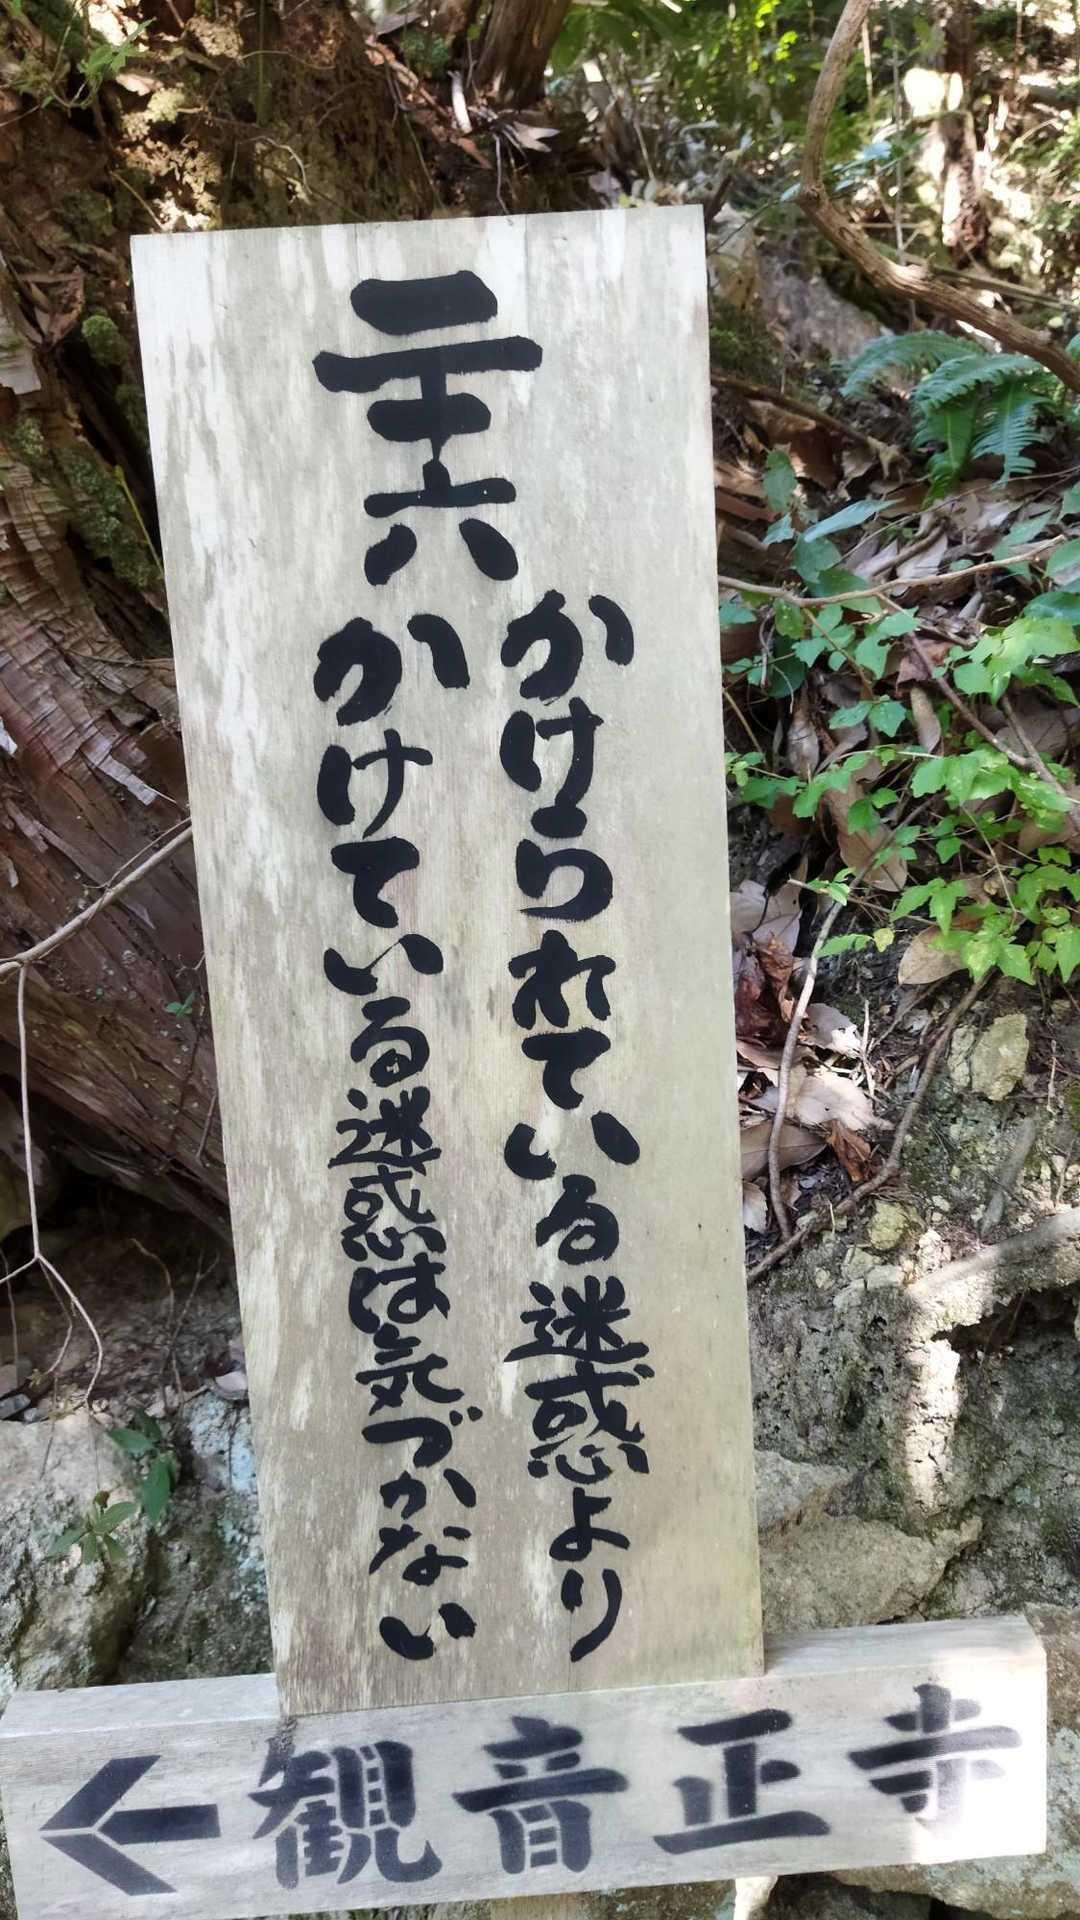 二十六
かけられている迷惑より
かけている迷惑は気づかない
←観音正寺